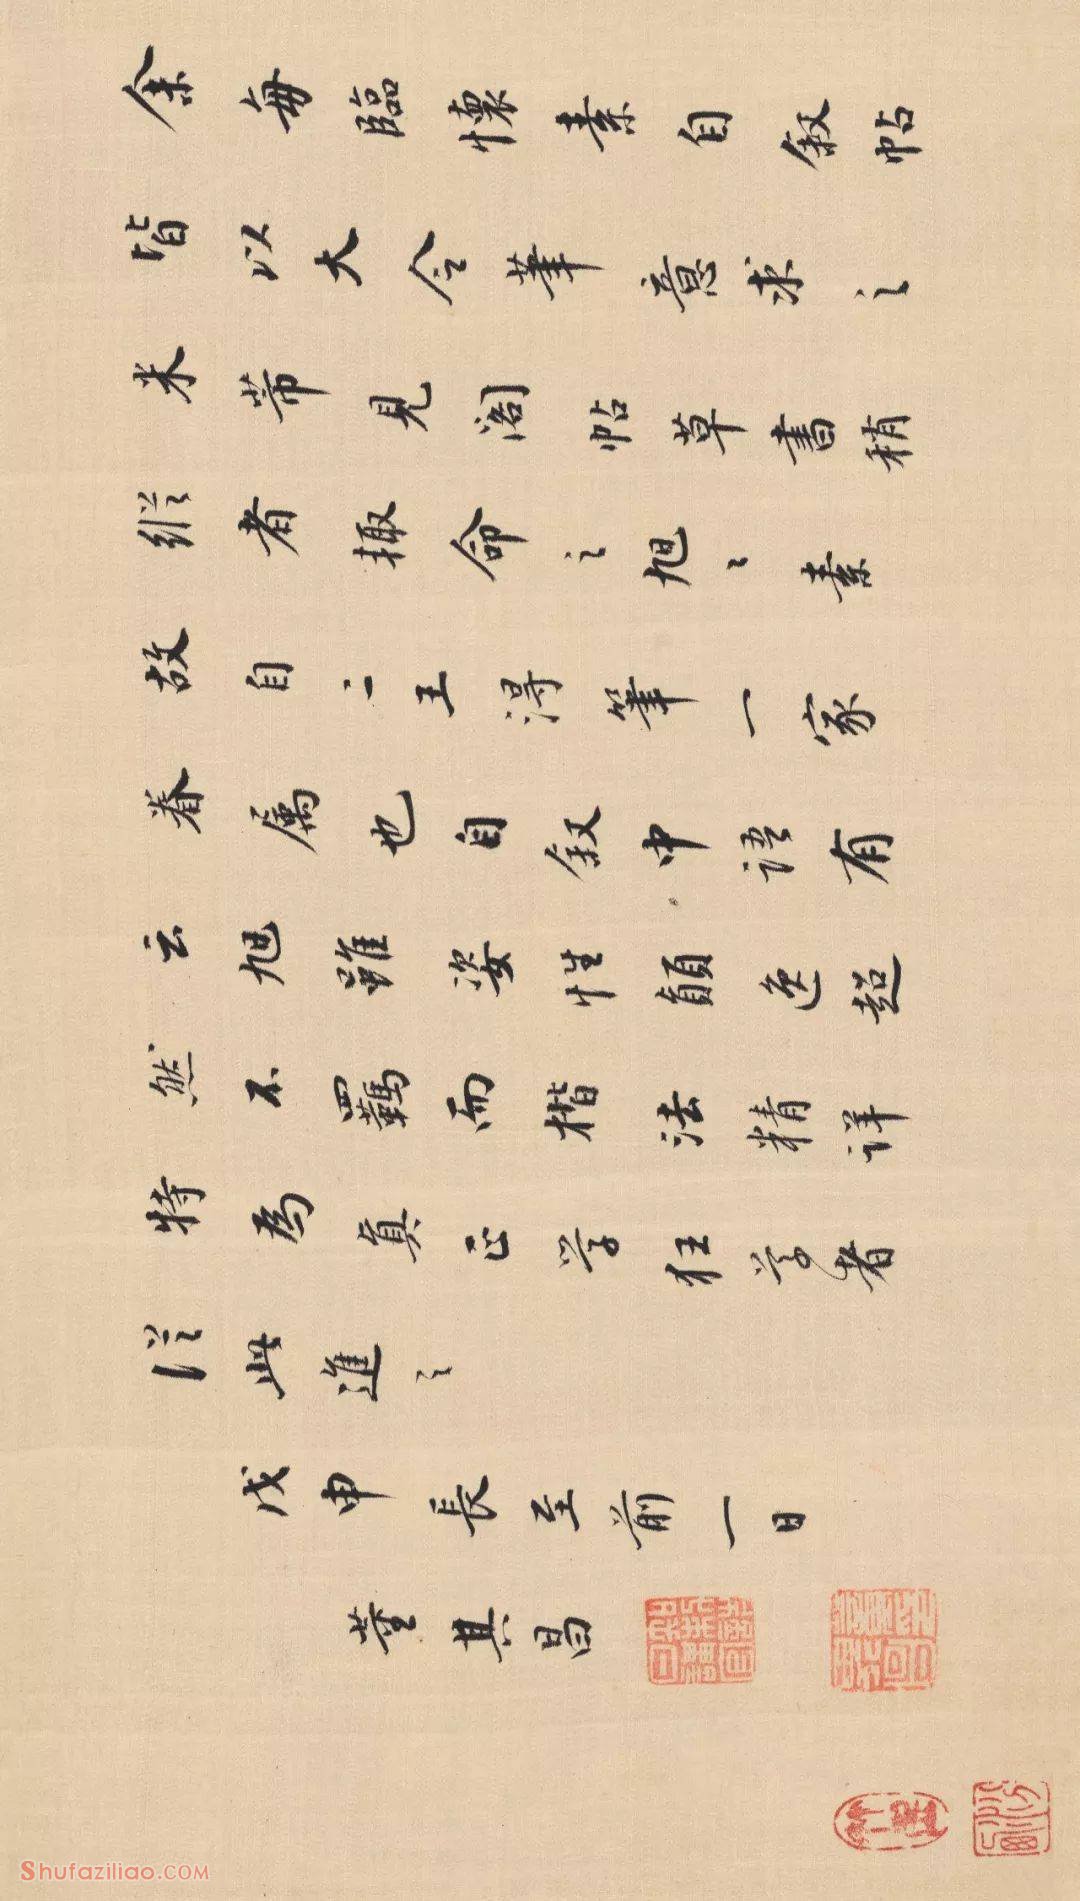 余每臨懷素自敘帖
皆以大令筆意求之
米芾見閣帖草書稍
縱者輙命之旭〻素
故自二王得筆一家
眷屬也自叙中語有
云旭雖姿性顛逸超
然不羈而楷法精詳
特為真正学狂学者
從此進之
戊申長至前一日
董其昌
Shufaziliao.com